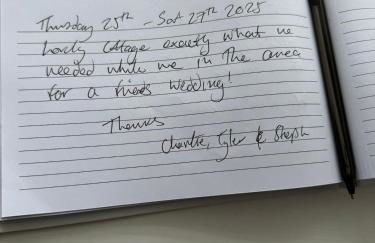 Thursday 25th - Sat 27th 2025
Lovely cottage exactly what we
needed while we in the area
for a friends wedding!
Thanks
Tyler &